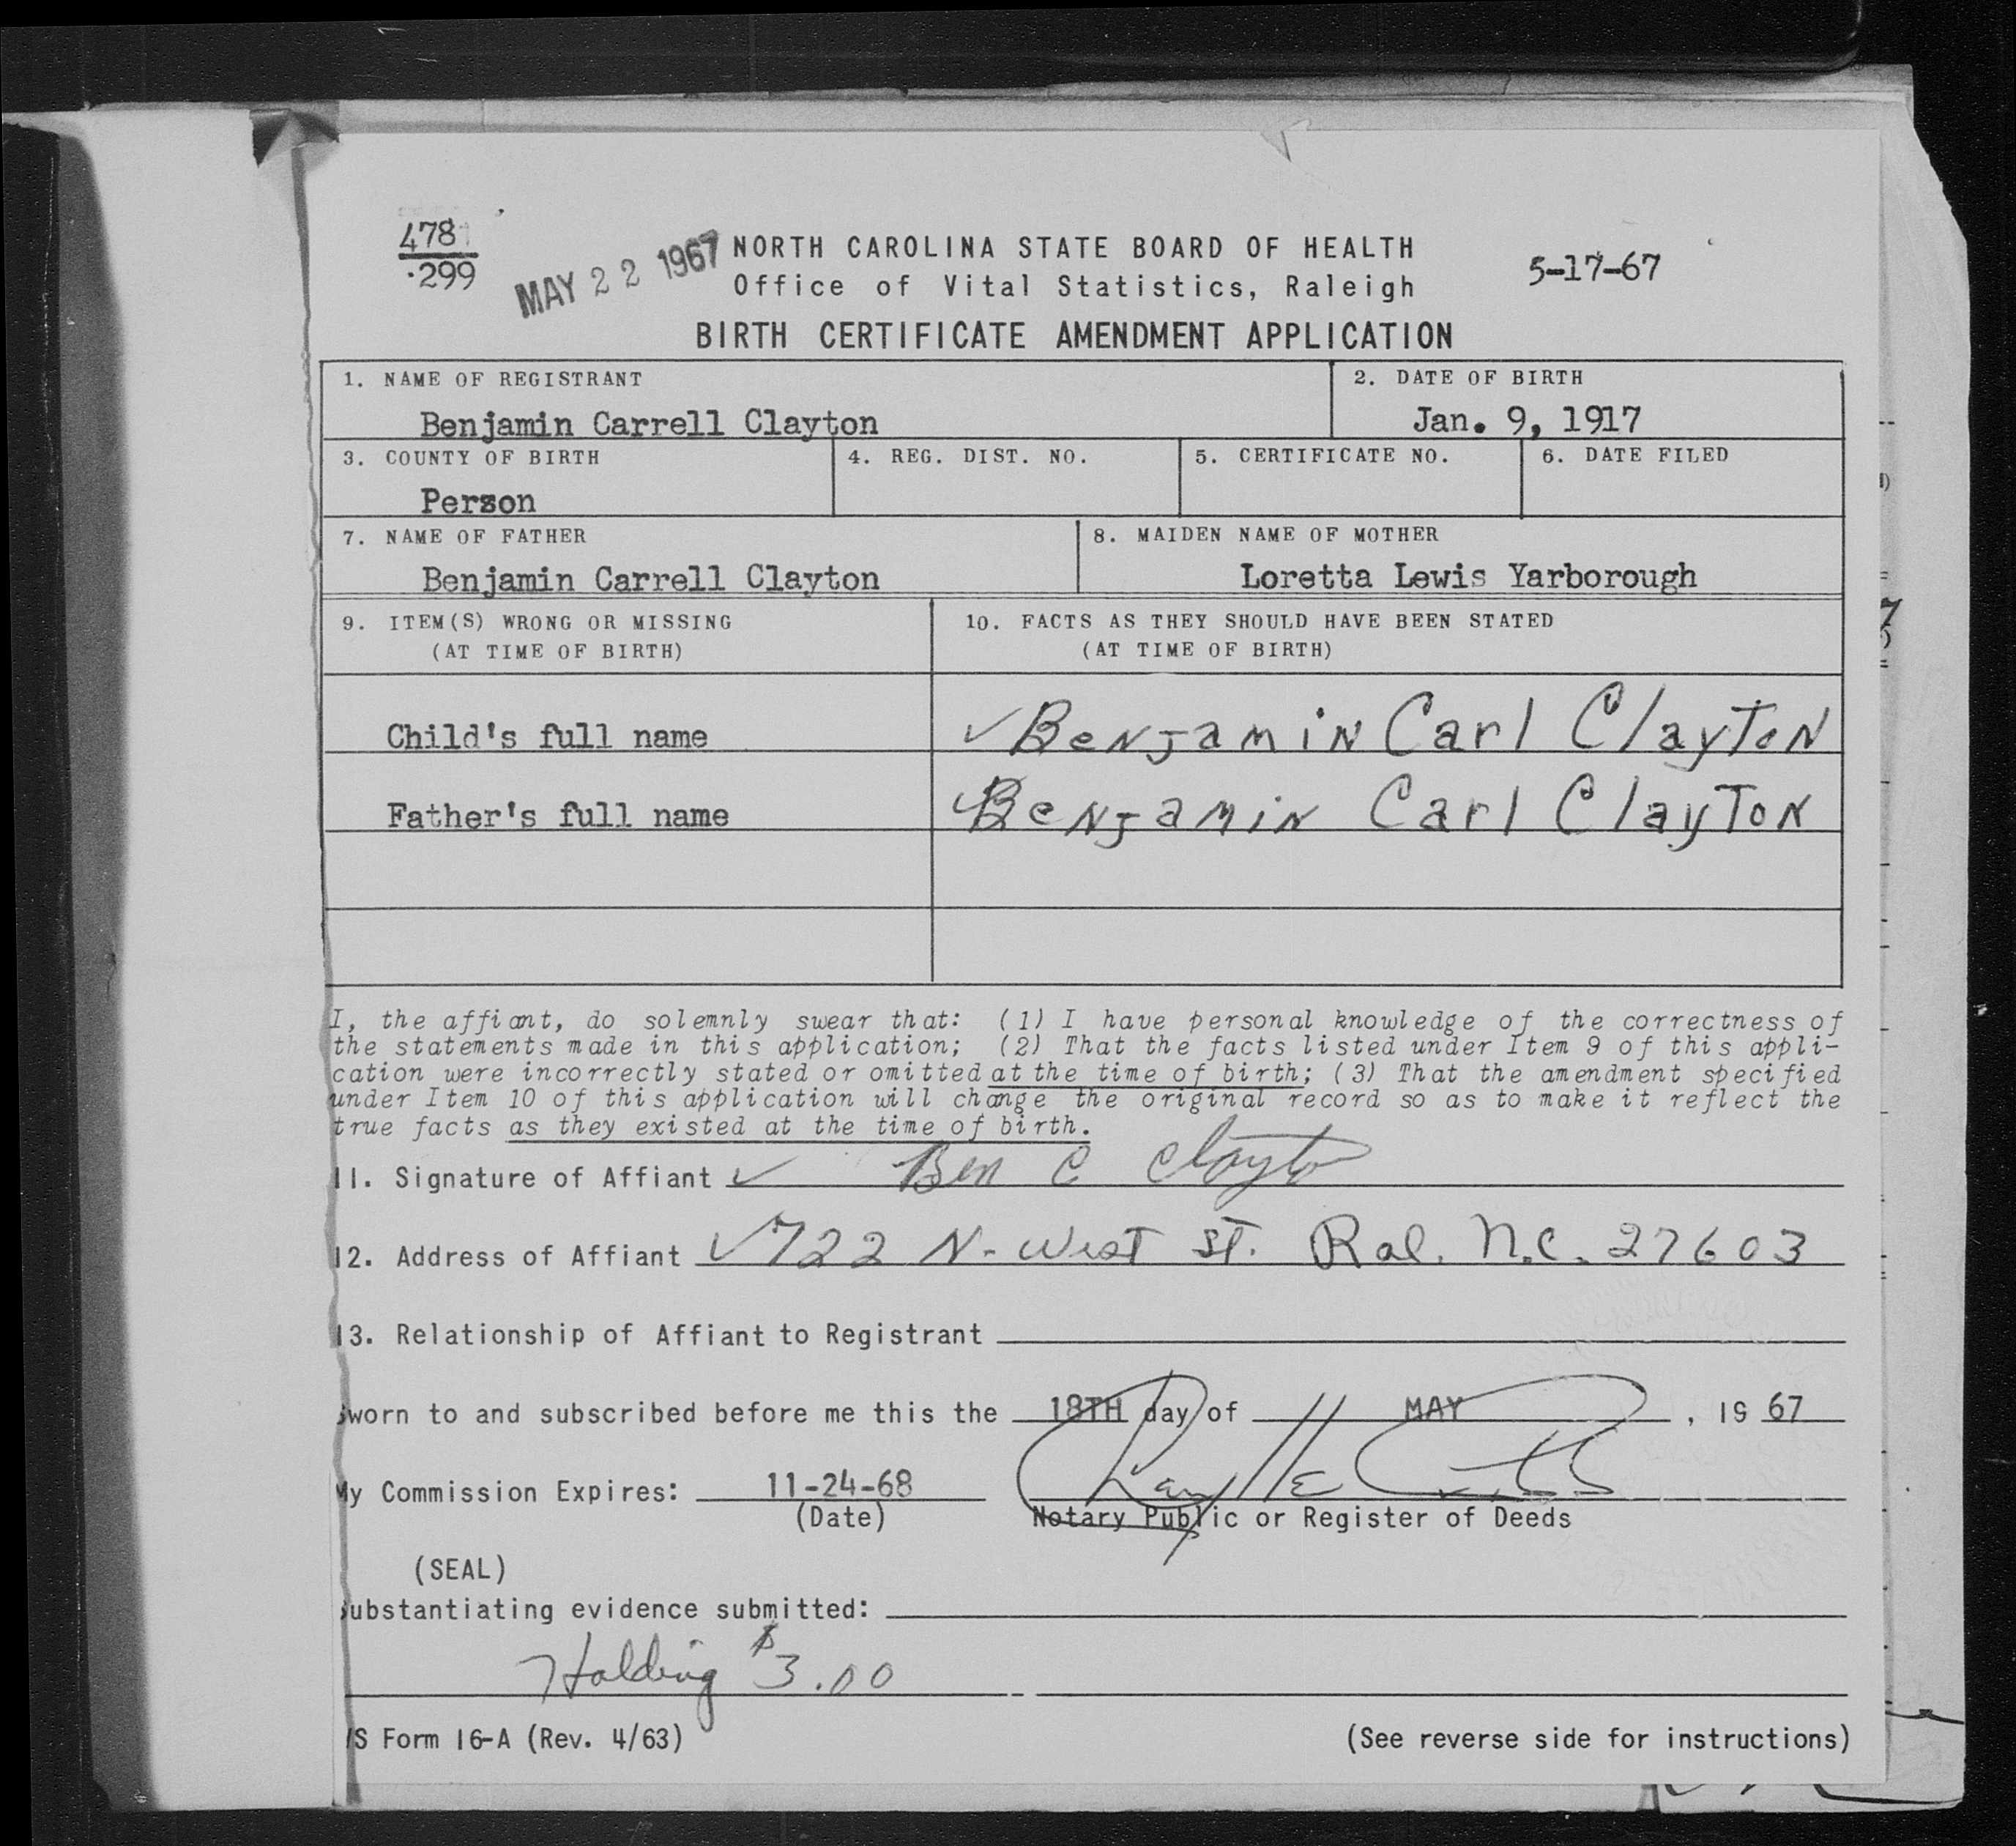 478
299
MAY 22 1967
NORTH CAROLINA STATE BOARD OF HEALTH
5-17-67
Office of Vital Statistics, Raleigh
BIRTH CERTIFICATE AMENDMENT APPLICATION
1. NAME OF REGISTRANT
2. DATE OF BIRTH
Benjamin Carrell Clayton
Jan. 9, 1917
3. COUNTY OF BIRTH
4. REG. DIST. NO.
5. CERTIFICATE NO.
6. DATE FILED
Person
7. NAME OF FATHER
8. MAIDEN NAME OF MOTHER
Benjamin Carrell Clayton
Loretta Lewis Yarborough
9. ITEM(S) WRONG OR MISSING
(AT TIME OF BIRTH)
10. FACTS AS THEY SHOULD HAVE BEEN STATED
(AT TIME OF BIRTH)
Child's full name
✓ Benjamin Carl Clayton
Father's full name
✓ Benjamin Carl Clayton
I, the affiant, do solemnly swear that: (1) I have personal knowledge of the correctness of
the statements made in this application; (2) That the facts listed under Item 9 of this appli-
cation were incorrectly stated or omitted at the time of birth; (3) That the amendment specified
under Item 10 of this application will change the original record so as to make it reflect the
true facts as they existed at the time of birth.
11. Signature of Affiant ✓ Ben C Clayton
12. Address of Affiant ✓ 722 N. West St. Ral. N.C. 27603
13. Relationship of Affiant to Registrant
Sworn to and subscribed before me this the 18TH day of MAY, 19 67
My Commission Expires: 11-24-68
(Date)
Notary Public or Register of Deeds
(SEAL)
Substantiating evidence submitted:
Holding $3.00
VS Form 16-A (Rev. 4/63)
(See reverse side for instructions)